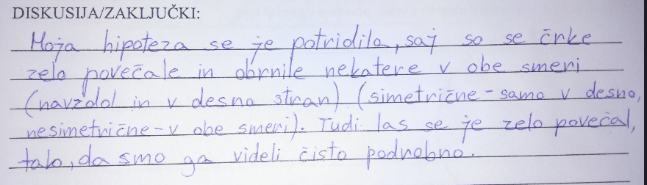 DISKUSIJA/ZAKLJUČKI:
Moja hipoteza se je potridila, saj so se črke
zelo povečale in obrnile nekatere v obe smeri
(navzdol in v desno stran) (simetrične - samo v desno,
nesimetrične - v obe smeri). Tudi las se je zelo povečal,
tako, da smo ga videli čisto podrobno.